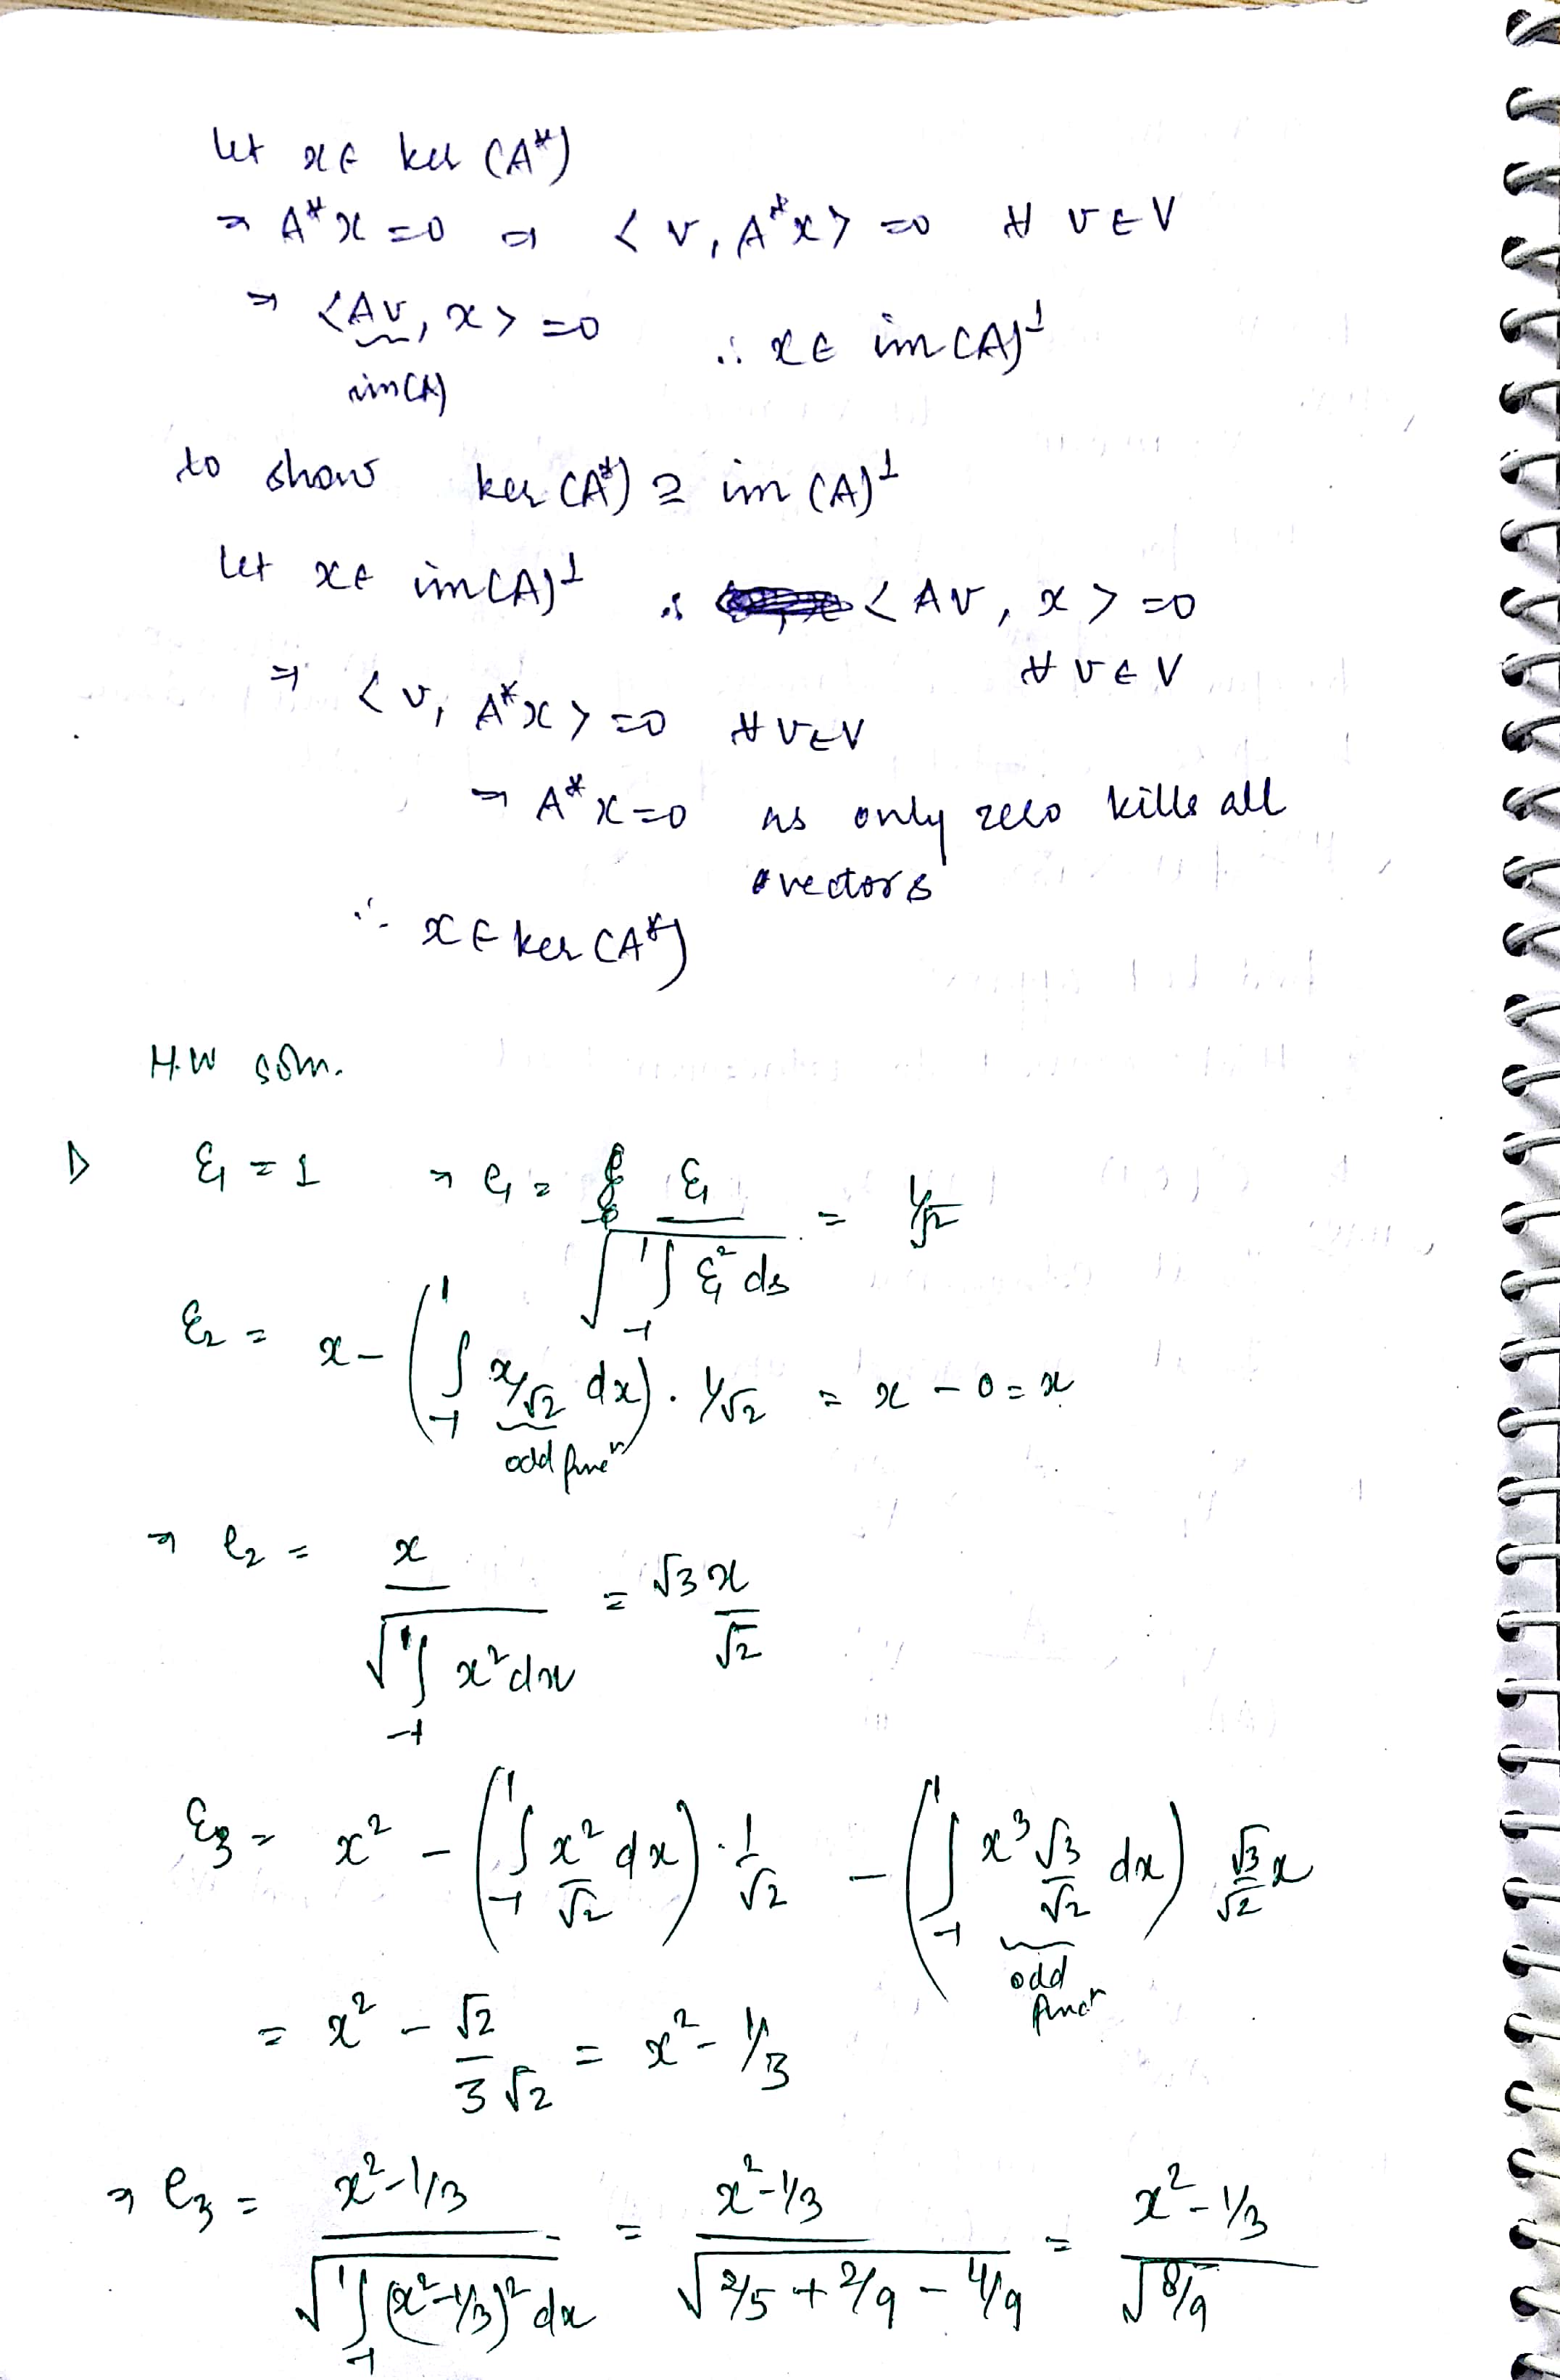 let x ∈ ker (A*)
⇒ A*x = 0 ⇒ < v, A*x > = 0 ∀ v ∈ V
⇒ <Av, x> = 0 ∴ x ∈ im(A)⊥
im(A)
to show ker (A*) ⊇ im (A)⊥
let x ∈ im(A)⊥ ∴ < Av, x > = 0
∀ v ∈ V
⇒ < v, A*x > = 0 ∀ v ∈ V
⇒ A*x = 0 as only zero kills all
vectors
∴ x ∈ ker (A*)
H.W soln.
1) ε₁ = 1 ⇒ e₁ = ε₁ / √(∫₋₁¹ ε₁² ds) = 1/√2
ε₂ = x - (∫₋₁¹ x/√2 dx) · 1/√2 = x - 0 = x
odd funcⁿ
⇒ e₂ = x / √(∫₋₁¹ x² dx) = √3 x / √2
ε₃ = x² - (∫₋₁¹ x²/√2 dx) · 1/√2 - (∫₋₁¹ x³ √3/√2 dx) √3/√2 x
odd
funcⁿ
= x² - √2 / 3√2 = x² - 1/3
⇒ e₃ = x² - 1/3 / √(∫₋₁¹ (x² - 1/3)² dx) = x² - 1/3 / √(2/5 + 2/9 - 4/9) = x² - 1/3 / √(8/9)